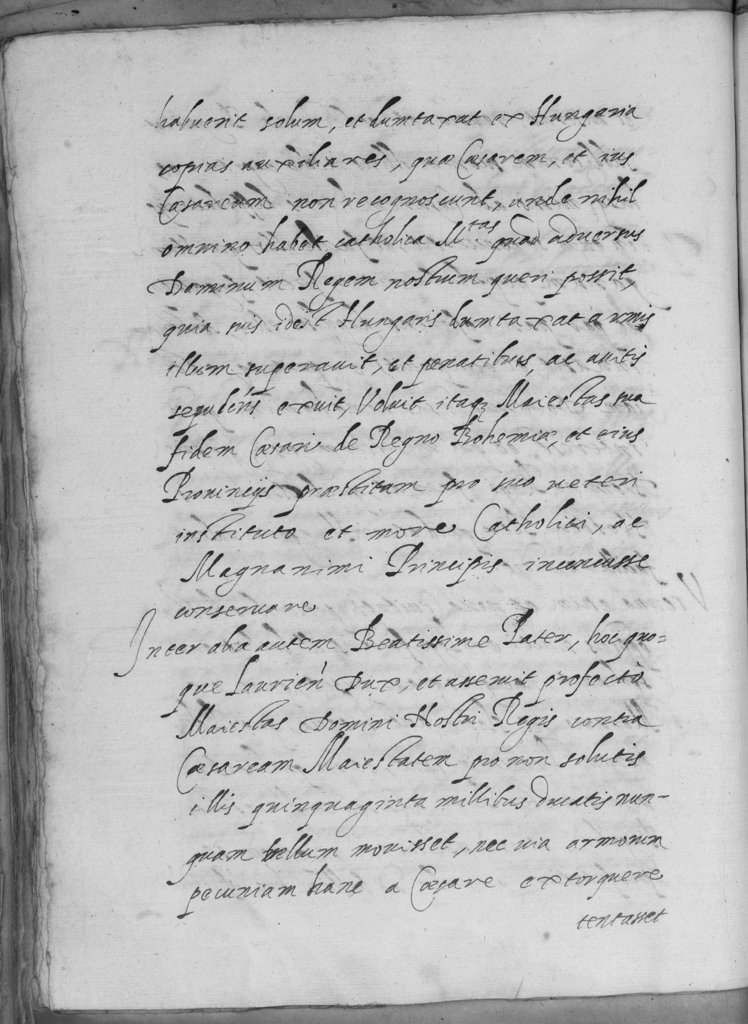 habuerit solum, et dumtaxat ex Hungaria
copias auxiliares, quæ Cæsarem, et ius
Cæsareum non recognoscunt, unde nihil
omnino habet catholica M.tas quod adversus
Dominum Regem nostrum queri possit,
quia suis idest Hungaris dumtaxat armis
illum superavit, et penatibus, ac avitis
exuit, Voluit itaq; Maiestas sua
fidem Cæsari de Regno Bohemiæ, et eius
Provincijs præstitam pro suo veteri
instituto et more Catholici, ac
Magnanimi Principis inconcusse
conservare
Inter alia autem Beatissime Pater, hoc quo=
que Laurien Dux, et asseruit profecto
Maiestas Domini Nostri Regis contra
Cæsaream Maiestatem pro non solutis
illis quinquaginta millibus ducatis nun=
quam bellum movisset, nec via armorum
pecuniam hanc a Cæsare extorquere
tentasset